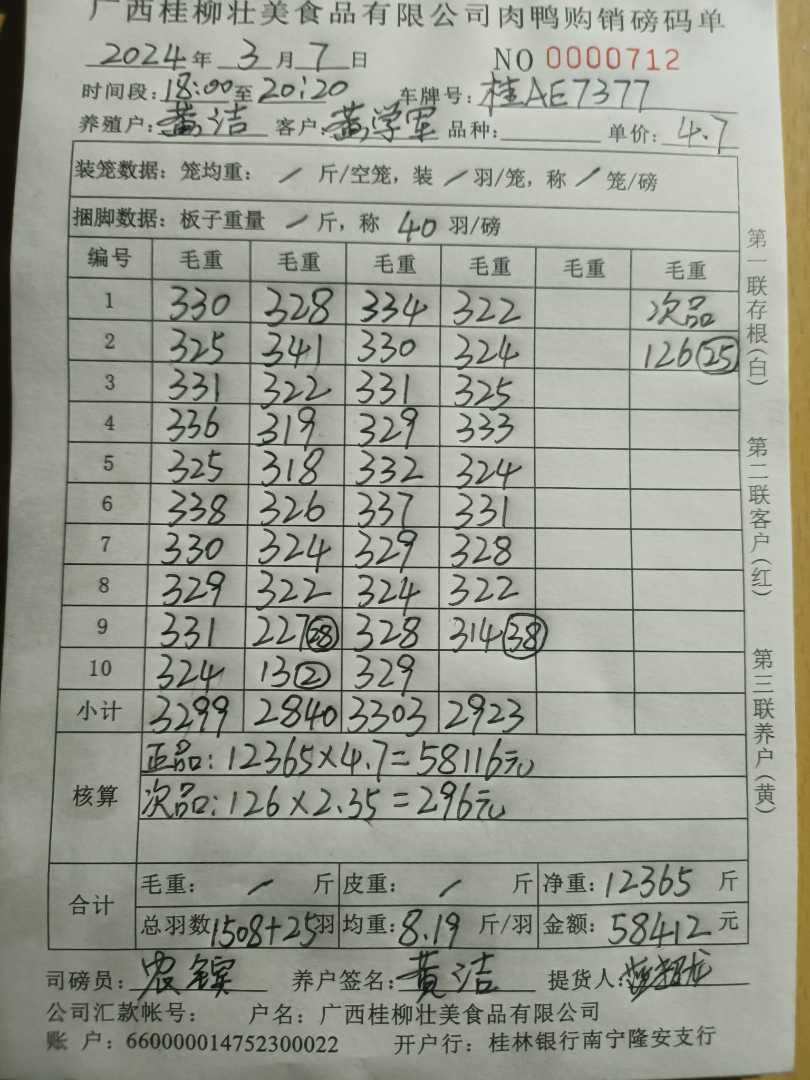 广西桂柳壮美食品有限公司肉鸭购销磅码单
2024年 3月 7日 NO 0000712
时间段:18:00至20:20 车牌号:桂AE7377
养殖户:黄洁 客户:黄学军 品种: 单价:4.7
装笼数据:笼均重: / 斤/空笼,装 / 羽/笼,称 / 笼/磅
捆脚数据:板子重量 / 斤,称 40 羽/磅
编号 毛重 毛重 毛重 毛重 毛重 毛重
1 330 328 334 322 次品
2 325 341 330 324 126(25)
3 331 322 331 325
4 336 319 329 333
5 325 318 332 324
6 338 326 337 331
7 330 324 329 328
8 329 322 324 322
9 331 227(28) 328 314(38)
10 324 13(2) 329
小计 3299 2840 3303 2923
核算 正品:12365×4.7=58116元
次品:126×2.35=296元
合计 毛重: / 斤 皮重: / 斤 净重:12365 斤
总羽数1508+25羽 均重:8.19 斤/羽 金额:58412元
司磅员:农镔 养户签名:黄洁 提货人:
公司汇款帐号: 户名:广西桂柳壮美食品有限公司
账 户:660000014752300022 开户行:桂林银行南宁隆安支行
第一联存根(白) 第二联客户(红) 第三联养户(黄)